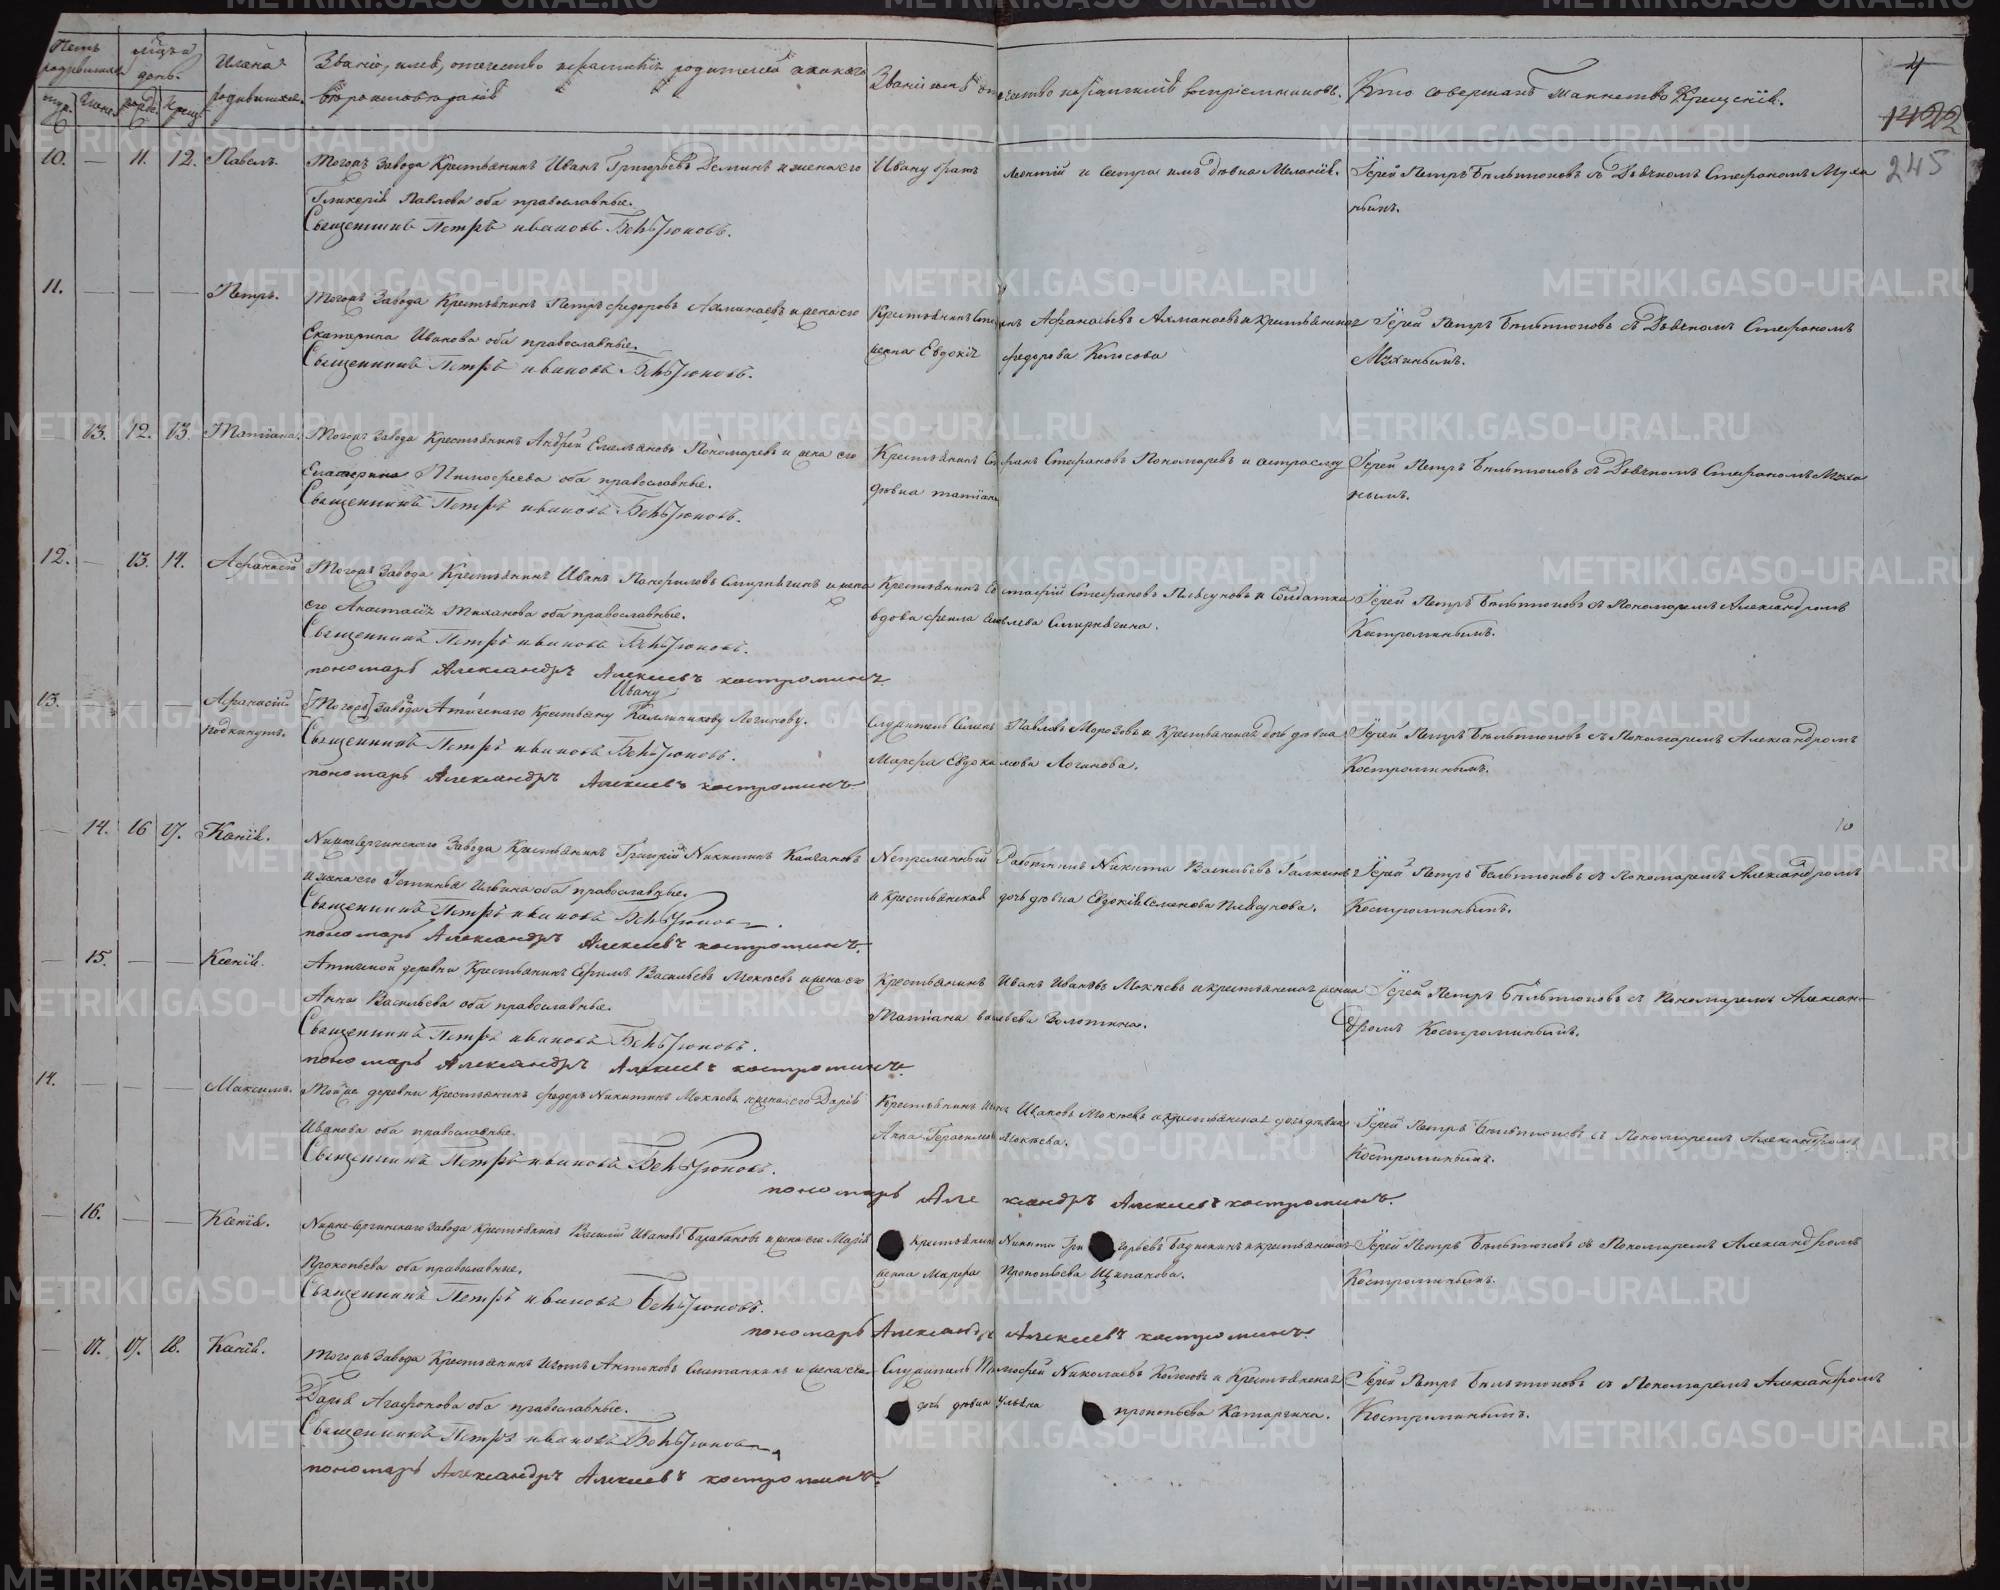 Счетъ родившихся
мѣсяцъ и день.
Имена родившихся.
Званіе, имя, отчество и фамилія родителей и какого вѣроисповѣданія
Званіе имя отчество и фамилія воспріемниковъ.
Кто совершалъ таинство Крещенія.
4
1422
245
10. — 11. 12. Павелъ.
Тогожъ завода Крестьянинъ Иванъ Григорьевъ Деминъ и жена его
Гликерія Павлова оба православные.
Священникъ Петръ Ивановъ Бѣльтюковъ.
Ивану братъ Леонтій и сестра имъ дѣвка Меланія.
Іерей Петръ Бѣльтюковъ съ Дьячкомъ Стефаномъ Муха
нымъ.
11. — — — Петръ.
Тогожъ завода Крестьянинъ Петръ Федоровъ Ахманаевъ и жена его
Екатерина Иванова оба православные.
Священникъ Петръ Ивановъ Бѣльтюковъ.
Афанасьевъ Ахманаевъ и крестьянская
жена Евдокія Федорова Колосова
Іерей Петръ Бѣльтюковъ съ Дьячкомъ Стефаномъ
Мухинымъ.
13. 12. 13. Татіана.
Тогожъ завода Крестьянинъ Андрей Емельяновъ Пономаревъ и жена его
Екатерина Тимофеева оба православные.
Священникъ Петръ Ивановъ Бѣльтюковъ.
Крестьянинъ Стефановъ Пономаревъ и сестра ему
дѣвка татіана
Іерей Петръ Бѣльтюковъ съ Дьячкомъ Стефаномъ Муха
нымъ.
12. — 13. 14. Афанасій
Тогожъ завода Крестьянинъ Иванъ Панфиловъ Смирнягинъ и жена
его Анастасія Тиханова оба православные.
Священникъ Петръ Ивановъ Бѣльтюковъ.
пономарь Александръ Алексѣевъ костроминъ
Крестьянинъ Евстафій Стефановъ Плясуновъ и Солдатка
вдова Фекла Яковлева Смирнягина.
Іерей Петръ Бѣльтюковъ съ Пономаремъ Александромъ
Костроминымъ.
13. — — — Афанасій
подкинутъ.
Ивану
[Тогожъ] завода Атигскаго Крестьяну Каллиникову Логинову.
Священникъ Петръ Ивановъ Бѣльтюковъ.
пономарь Александръ Алексѣевъ костроминъ
Служитель Семенъ Павловъ Морозовъ и Крестьянская дочь дѣвка
Марфа Евдокимова Логинова.
Іерей Петръ Бѣльтюковъ съ Пономаремъ Александромъ
Костроминымъ.
— 14. 16 17. Ксенія.
Нижнесергинскаго завода Крестьянинъ Григорій Никитинъ
и жена его Устинья Ильина оба православные.
Священникъ Петръ Ивановъ Бѣльтюковъ.
пономарь Александръ Алексѣевъ костроминъ.
Непремѣнный работникъ Никита Васильевъ Галкинъ
и крестьянская дочь дѣвка Евдокія Семенова Плясунова.
Іерей Петръ Бѣльтюковъ съ Пономаремъ Александромъ
Костроминымъ.
— 15. — — Ксенія.
Атигской деревни Крестьянинъ Ефимъ Васильевъ Мокѣевъ и жена его
Анна Васильева оба православные.
Священникъ Петръ Ивановъ Бѣльтюковъ.
пономарь Александръ Алексѣевъ костроминъ.
Крестьянинъ Иванъ Ивановъ Мокѣевъ и крестьянская жена
Татіана Золотина.
Іерей Петръ Бѣльтюковъ съ Пономаремъ Алексан-
дромъ Костроминымъ.
14. — — — Максимъ.
Тойже деревни Крестьянинъ Федоръ Никитинъ Мокѣевъ и жена его Дарія
Иванова оба православные.
Священникъ Петръ Ивановъ Бѣльтюковъ.
пономарь Александръ Алексѣевъ костроминъ.
Крестьянинъ Ивановъ Мокѣевъ и крестьянская дочь дѣвка
Анна Герасимова Мокѣева.
Іерей Петръ Бѣльтюковъ съ Пономаремъ Александромъ
Костроминымъ.
— 16. — — Ксенія.
Нижнесергинскаго завода Крестьянинъ Василій Ивановъ Барабановъ и жена его Марія
Прокопьева оба православные.
Священникъ Петръ Ивановъ Бѣльтюковъ.
пономарь Александръ Алексѣевъ костроминъ.
Крестьянинъ Никита Григорьевъ и крестьянская
жена Марфа Прокопьева Щипанова.
Іерей Петръ Бѣльтюковъ съ Пономаремъ Александромъ
Костроминымъ.
— 17. 17. 18. Ксенія.
Тогожъ завода Крестьянинъ Изотъ Антоновъ Сметанкинъ и жена его
Дарія Агафонова оба православные.
Священникъ Петръ Ивановъ Бѣльтюковъ
пономарь Александръ Алексѣевъ костроминъ.
Служитель Тимофей Николаевъ Колосовъ и Крестьянская
дочь дѣвка Ульяна прокопьева Катаргина.
Іерей Петръ Бѣльтюковъ съ Пономаремъ Александромъ
Костроминымъ.
METRIKI.GASO-URAL.RU